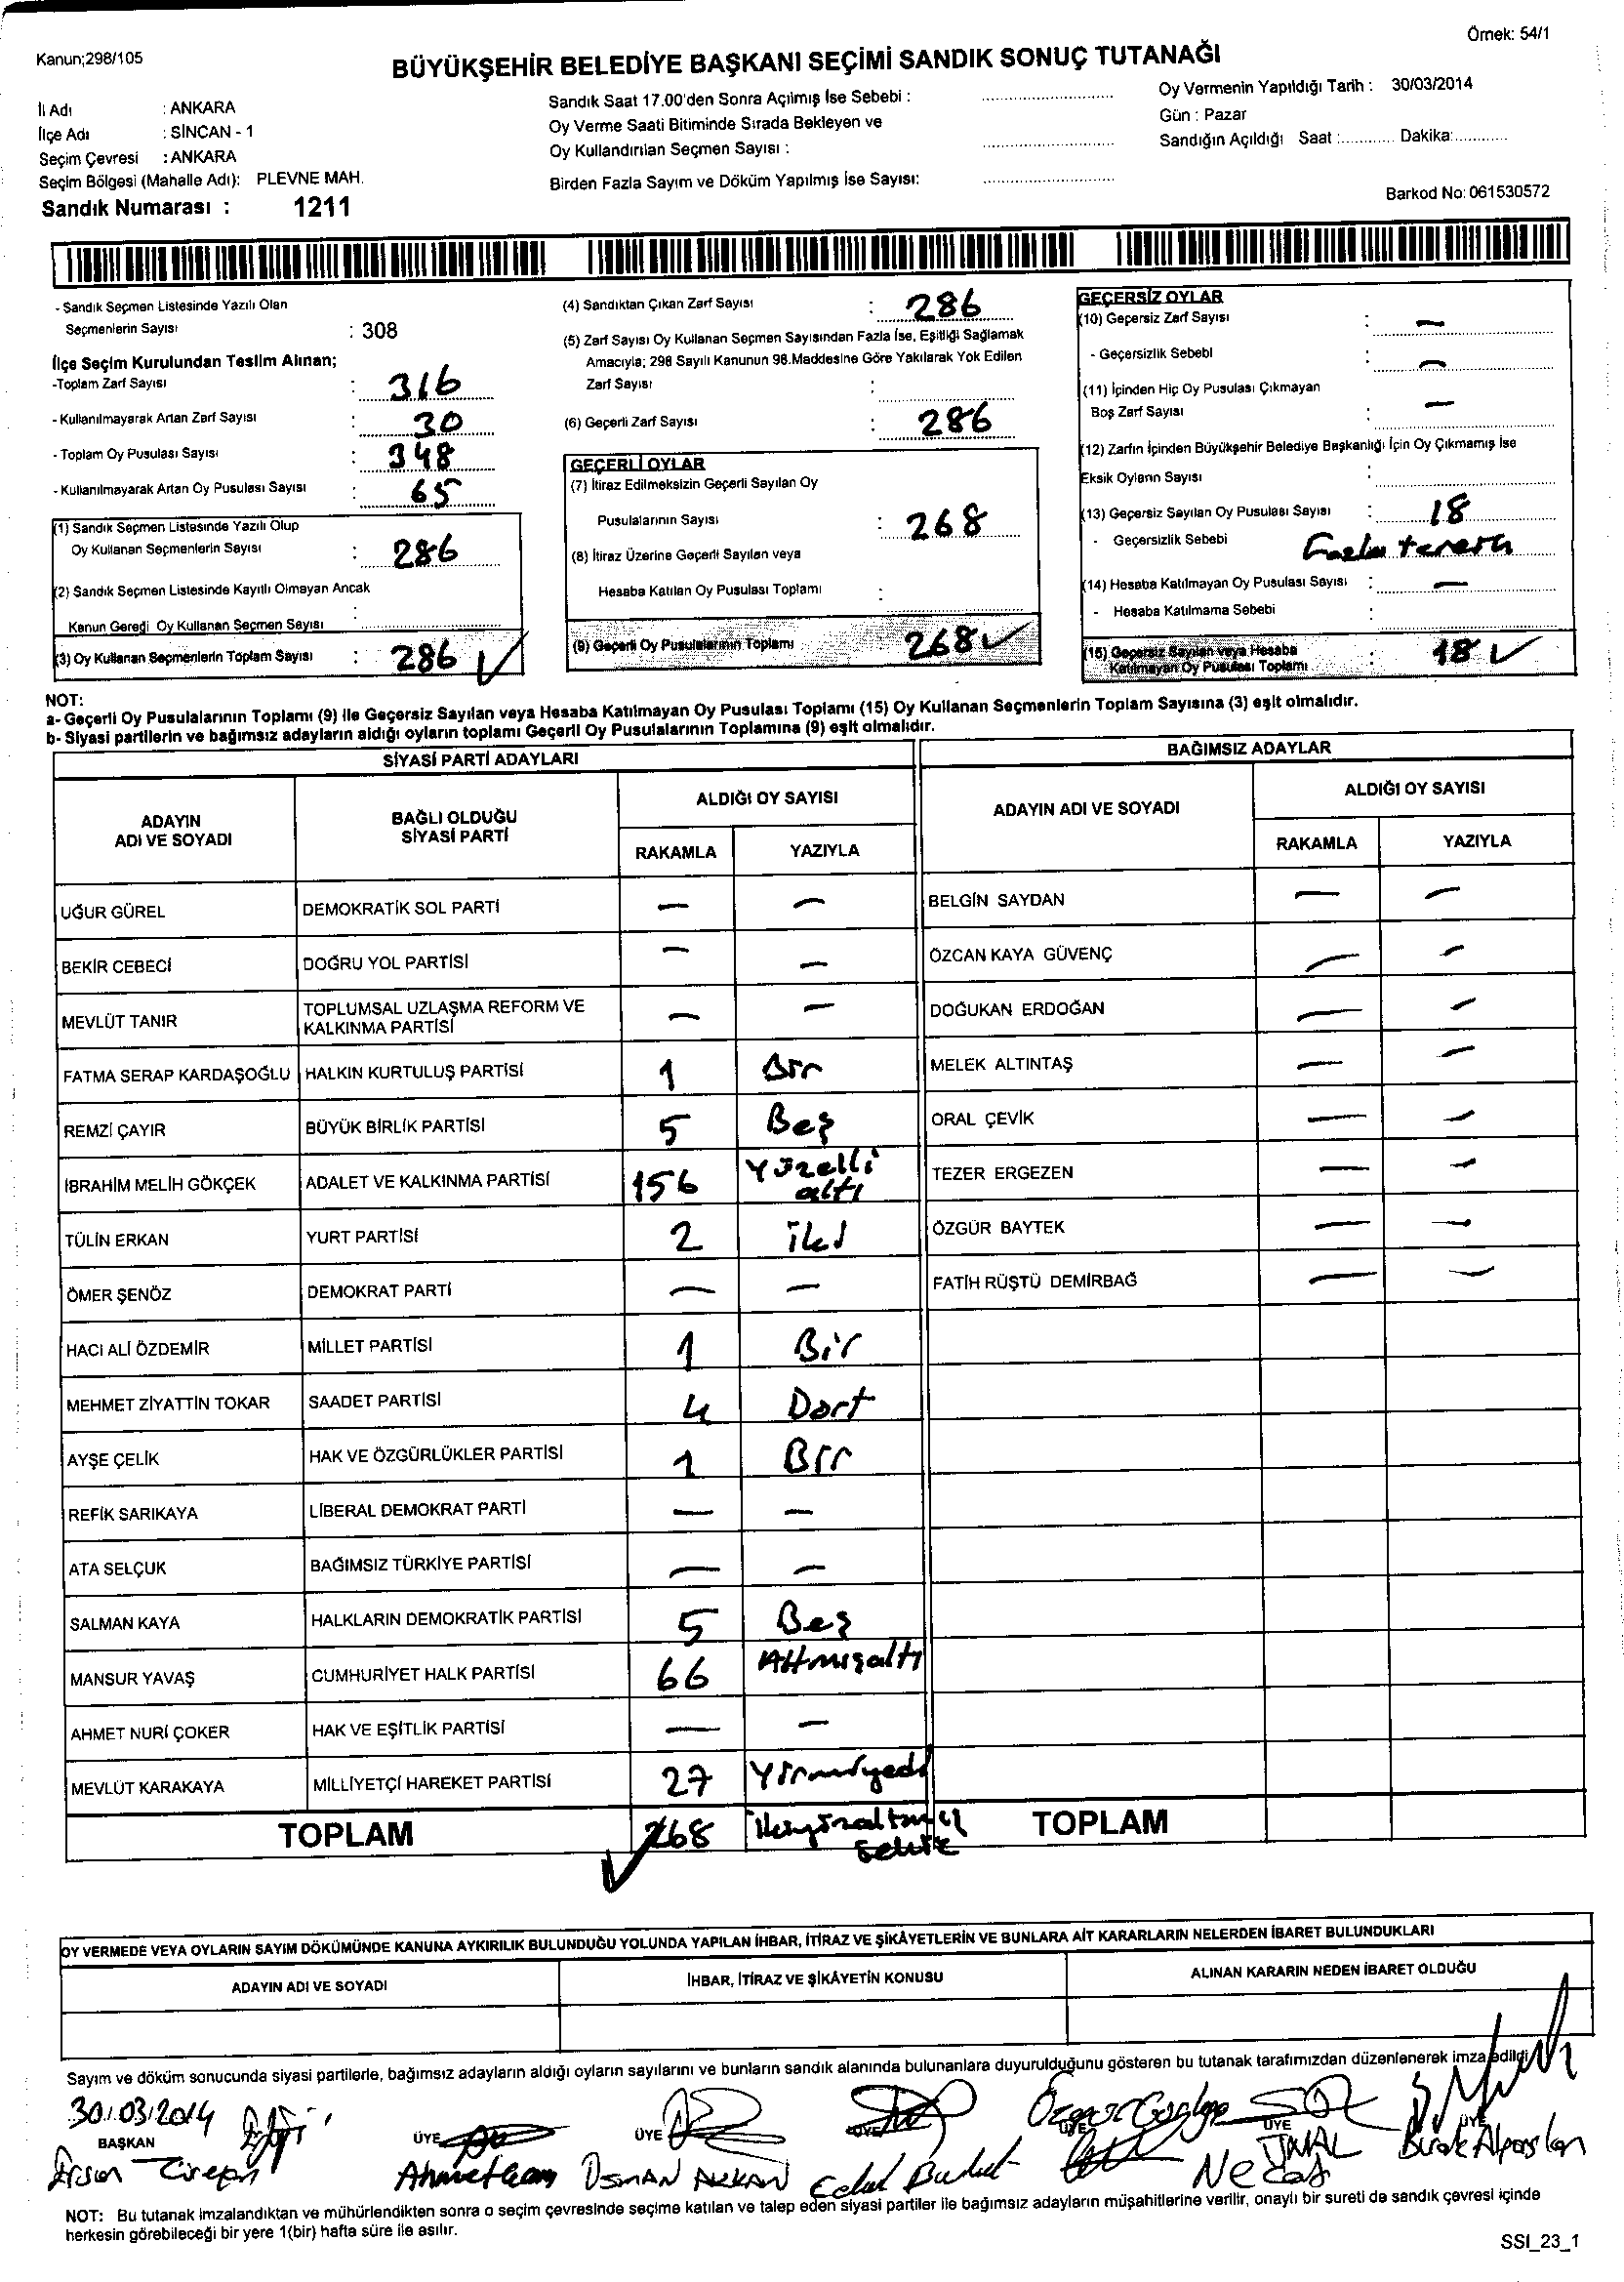 Örnek: 54/1
Kanun;298/105
BÜYÜKŞEHİR BELEDİYE BAŞKANI SEÇİMİ SANDIK SONUÇ TUTANAĞI
İl Adı : ANKARA
İlçe Adı : SİNCAN - 1
Seçim Çevresi : ANKARA
Seçim Bölgesi (Mahalle Adı): PLEVNE MAH.
Sandık Numarası : 1211
Sandık Saat 17.00'den Sonra Açılmış İse Sebebi :
Oy Verme Saati Bitiminde Sırada Bekleyen ve
Oy Kullandırılan Seçmen Sayısı :
Birden Fazla Sayım ve Döküm Yapılmış İse Sayısı:
Oy Vermenin Yapıldığı Tarih : 30/03/2014
Gün : Pazar
Sandığın Açıldığı Saat :............ Dakika:............
Barkod No: 061530572
- Sandık Seçmen Listesinde Yazılı Olan
Seçmenlerin Sayısı : 308
İlçe Seçim Kurulundan Teslim Alınan;
-Toplam Zarf Sayısı : 316
- Kullanılmayarak Artan Zarf Sayısı : 30
- Toplam Oy Pusulası Sayısı : 348
- Kullanılmayarak Artan Oy Pusulası Sayısı : 65
(1) Sandık Seçmen Listesinde Yazılı Olup
Oy Kullanan Seçmenlerin Sayısı : 286
(2) Sandık Seçmen Listesinde Kayıtlı Olmayan Ancak
Kanun Gereği Oy Kullanan Seçmen Sayısı :
(3) Oy Kullanan Seçmenlerin Toplam Sayısı : 286 ✓
(4) Sandıktan Çıkan Zarf Sayısı : 286
(5) Zarf Sayısı Oy Kullanan Seçmen Sayısından Fazla İse, Eşitliği Sağlamak
Amacıyla; 298 Sayılı Kanunun 98.Maddesine Göre Yakılarak Yok Edilen
Zarf Sayısı :
(6) Geçerli Zarf Sayısı : 286
GEÇERLİ OYLAR
(7) İtiraz Edilmeksizin Geçerli Sayılan Oy
Pusulalarının Sayısı : 268
(8) İtiraz Üzerine Geçerli Sayılan veya
Hesaba Katılan Oy Pusulası Toplamı :
(9) Geçerli Oy Pusulalarının Toplamı : 268 ✓
GEÇERSİZ OYLAR
(10) Geçersiz Zarf Sayısı : —
- Geçersizlik Sebebi : —
(11) İçinden Hiç Oy Pusulası Çıkmayan
Boş Zarf Sayısı : —
(12) Zarfın İçinden Büyükşehir Belediye Başkanlığı İçin Oy Çıkmamış İse
Eksik Oyların Sayısı :
(13) Geçersiz Sayılan Oy Pusulası Sayısı : 18
- Geçersizlik Sebebi
(14) Hesaba Katılmayan Oy Pusulası Sayısı : —
- Hesaba Katılmama Sebebi :
(15) Geçersiz Sayılan veya Hesaba
Katılmayan Oy Pusulası Toplamı : 18 ✓
NOT:
a- Geçerli Oy Pusulalarının Toplamı (9) ile Geçersiz Sayılan veya Hesaba Katılmayan Oy Pusulası Toplamı (15) Oy Kullanan Seçmenlerin Toplam Sayısına (3) eşit olmalıdır.
b- Siyasi partilerin ve bağımsız adayların aldığı oyların toplamı Geçerli Oy Pusulalarının Toplamına (9) eşit olmalıdır.
SİYASİ PARTİ ADAYLARI
ADAYIN ADI VE SOYADI BAĞLI OLDUĞU SİYASİ PARTİ ALDIĞI OY SAYISI
RAKAMLA YAZIYLA
UĞUR GÜREL DEMOKRATİK SOL PARTİ — —
BEKİR CEBECİ DOĞRU YOL PARTİSİ — —
MEVLÜT TANIR TOPLUMSAL UZLAŞMA REFORM VE KALKINMA PARTİSİ — —
FATMA SERAP KARDAŞOĞLU HALKIN KURTULUŞ PARTİSİ 1 Bir
REMZİ ÇAYIR BÜYÜK BİRLİK PARTİSİ 5 Beş
İBRAHİM MELİH GÖKÇEK ADALET VE KALKINMA PARTİSİ 156 Yüzelli altı
TÜLİN ERKAN YURT PARTİSİ 2 iki
ÖMER ŞENÖZ DEMOKRAT PARTİ — —
HACI ALİ ÖZDEMİR MİLLET PARTİSİ 1 Bir
MEHMET ZİYATTİN TOKAR SAADET PARTİSİ 4 Dört
AYŞE ÇELİK HAK VE ÖZGÜRLÜKLER PARTİSİ 1 Bir
REFİK SARIKAYA LİBERAL DEMOKRAT PARTİ — —
ATA SELÇUK BAĞIMSIZ TÜRKİYE PARTİSİ — —
SALMAN KAYA HALKLARIN DEMOKRATİK PARTİSİ 5 Beş
MANSUR YAVAŞ CUMHURİYET HALK PARTİSİ 66 Altmışaltı
AHMET NURİ ÇOKER HAK VE EŞİTLİK PARTİSİ — —
MEVLÜT KARAKAYA MİLLİYETÇİ HAREKET PARTİSİ 27 Yirmiyedi
TOPLAM 268 ikiyüzaltmış sekiz
BAĞIMSIZ ADAYLAR
ADAYIN ADI VE SOYADI ALDIĞI OY SAYISI
RAKAMLA YAZIYLA
BELGİN SAYDAN — —
ÖZCAN KAYA GÜVENÇ — —
DOĞUKAN ERDOĞAN — —
MELEK ALTINTAŞ — —
ORAL ÇEVİK — —
TEZER ERGEZEN — —
ÖZGÜR BAYTEK — —
FATİH RÜŞTÜ DEMİRBAĞ — —
TOPLAM
OY VERMEDE VEYA OYLARIN SAYIM DÖKÜMÜNDE KANUNA AYKIRILIK BULUNDUĞU YOLUNDA YAPILAN İHBAR, İTİRAZ VE ŞİKÂYETLERİN VE BUNLARA AİT KARARLARIN NELERDEN İBARET BULUNDUKLARI
ADAYIN ADI VE SOYADI İHBAR, İTİRAZ VE ŞİKÂYETİN KONUSU ALINAN KARARIN NEDEN İBARET OLDUĞU
Sayım ve döküm sonucunda siyasi partilerle, bağımsız adayların aldığı oyların sayılarını ve bunların sandık alanında bulunanlara duyurulduğunu gösteren bu tutanak tarafımızdan düzenlenerek imza edildi.
30.03.2014
BAŞKAN ÜYE ÜYE ÜYE ÜYE ÜYE ÜYE
OSMAN Necat ÜNAL Burak Alparslan
NOT: Bu tutanak imzalandıktan ve mühürlendikten sonra o seçim çevresinde seçime katılan ve talep eden siyasi partiler ile bağımsız adayların müşahitlerine verilir, onaylı bir sureti de sandık çevresi içinde
herkesin görebileceği bir yere 1(bir) hafta süre ile asılır.
SSI_23_1